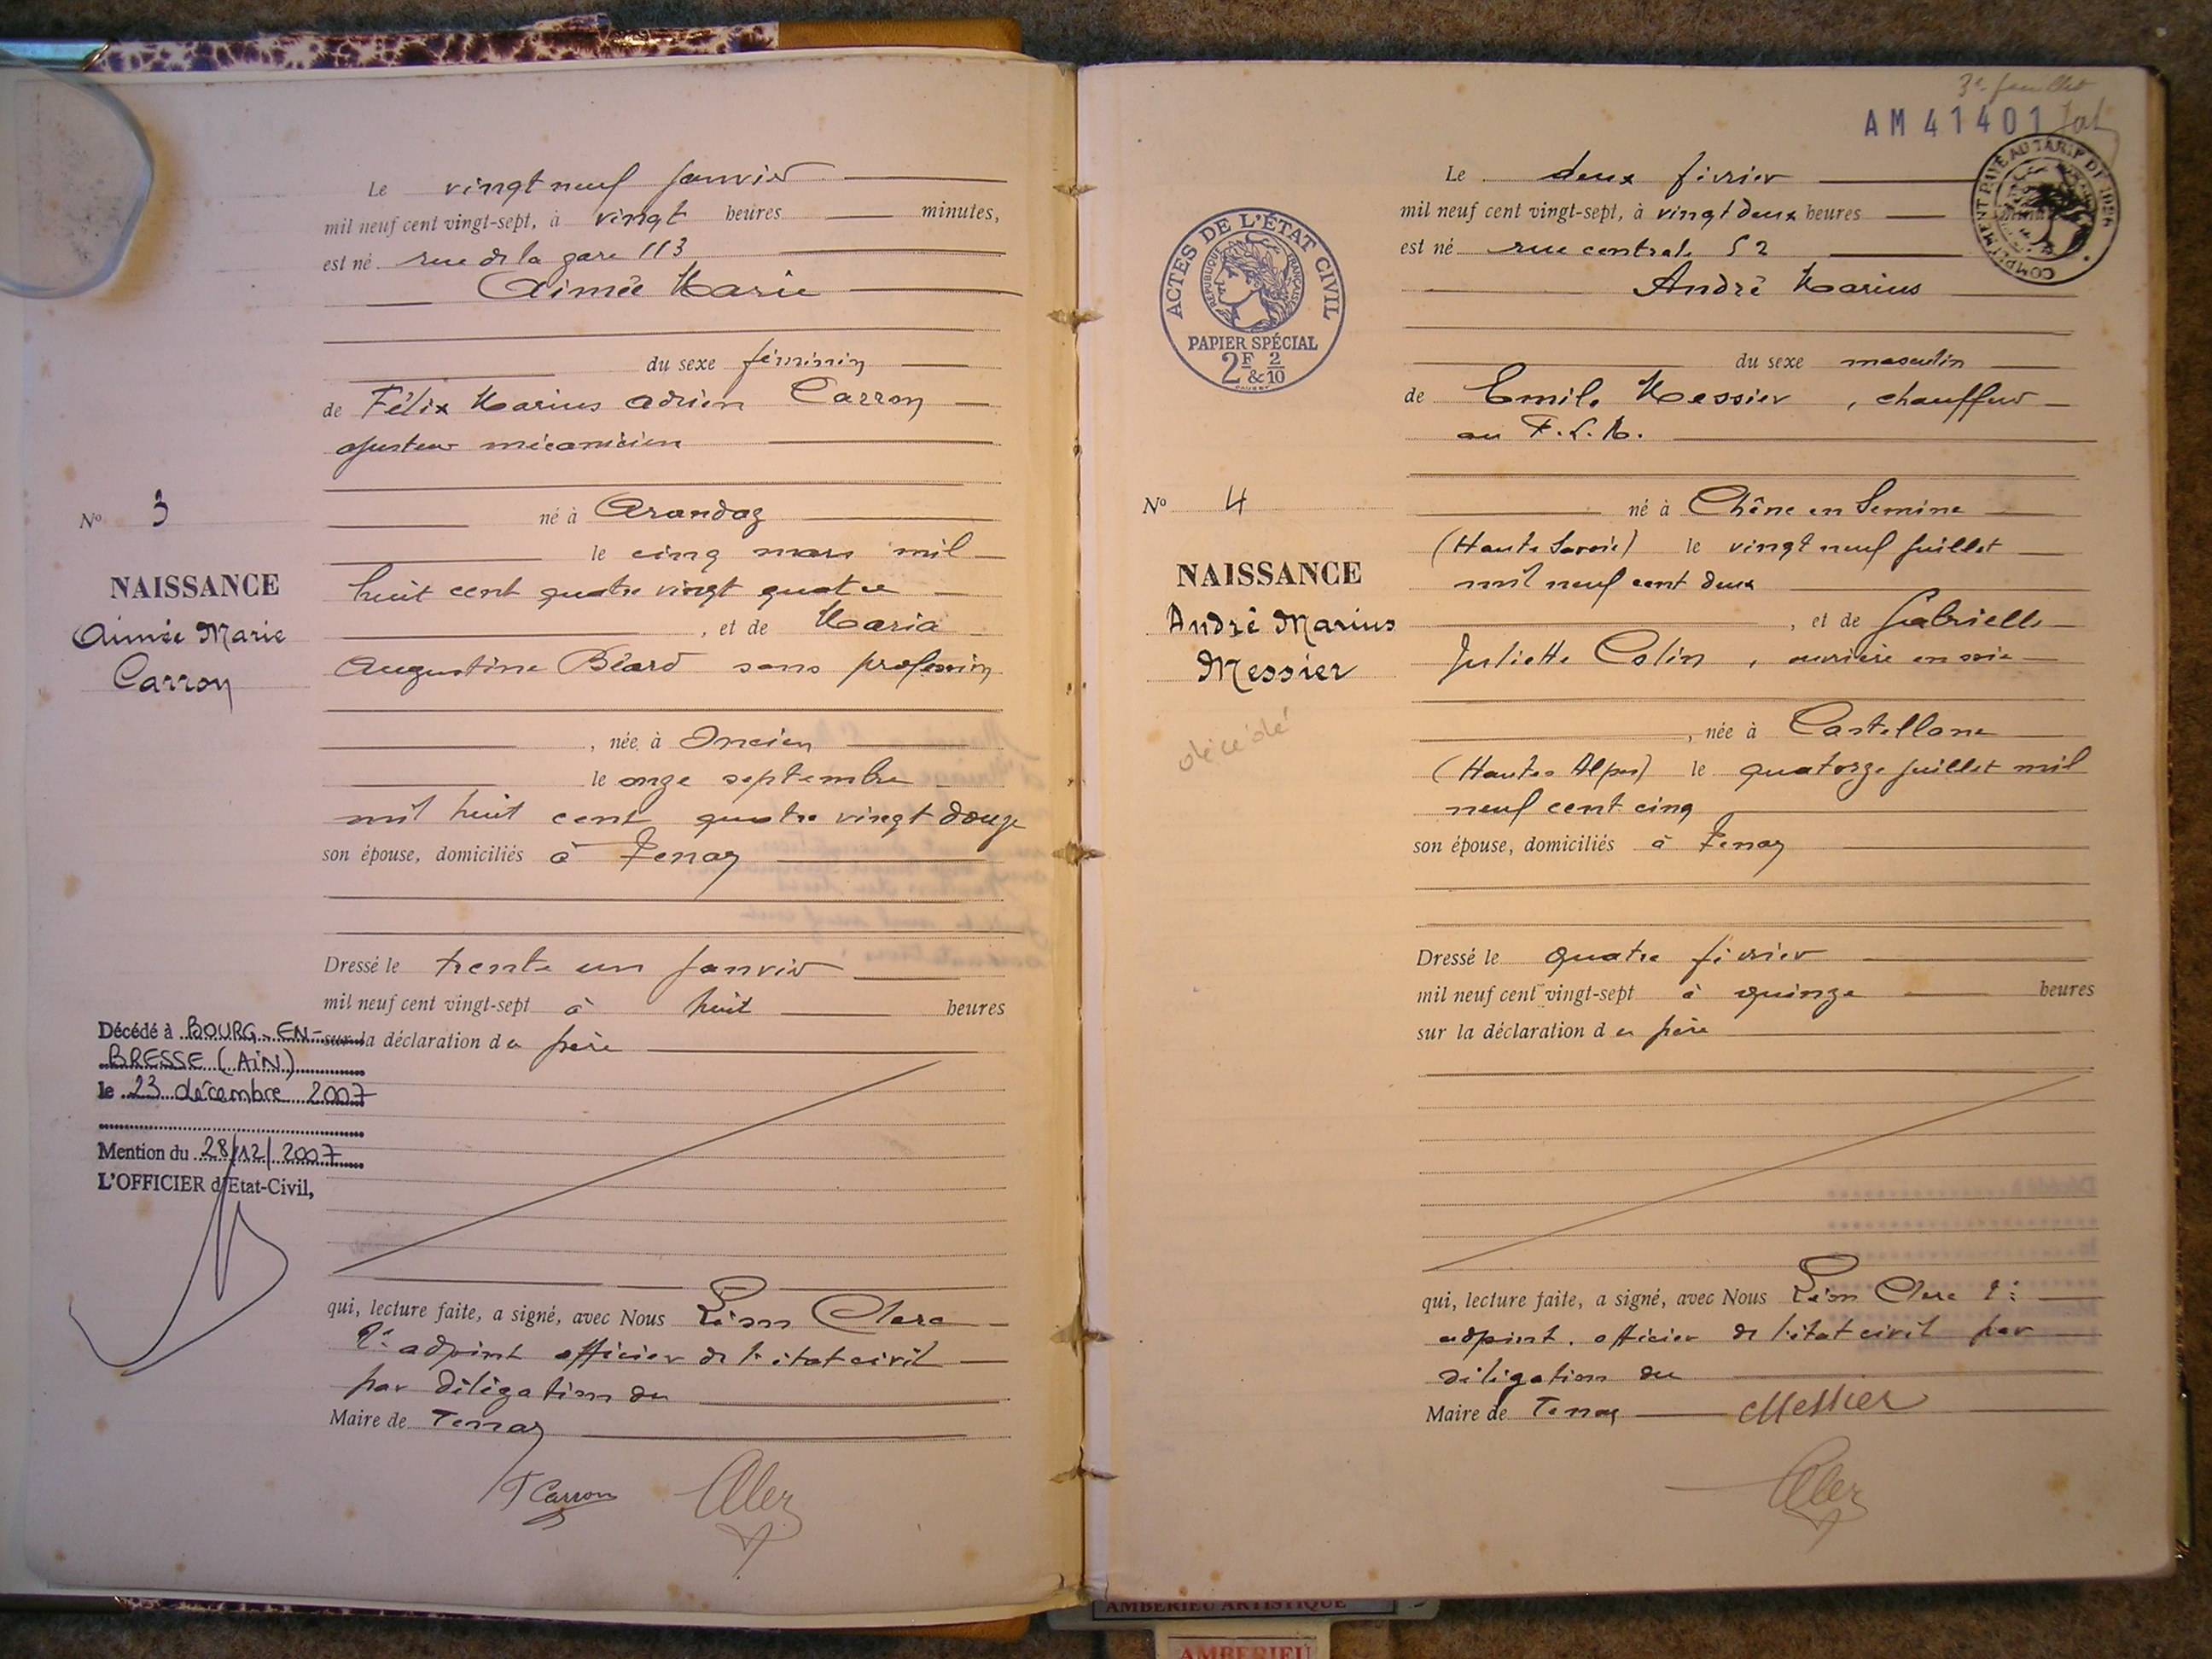 Le vingt neuf janvier
mil neuf cent vingt-sept, à vingt heures minutes,
est né rue de la gare 113
Aimée Marie
du sexe féminin
de Félix Marius Adrien Carron
ajusteur mécanicien
né à Arandaz
le cinq mars mil
huit cent quatre vingt quatre
, et de Maria
Augustine Béard sans profession
, née à Oncieu
le onze septembre
mil huit cent quatre vingt douze
son épouse, domiciliés à Tenay
Dressé le trente un janvier
mil neuf cent vingt-sept à huit heures
sur la déclaration du père
qui, lecture faite, a signé, avec Nous Léon Clerc
2e adjoint officier de l'état civil
par délégation du
Maire de Tenay
F Carron
N° 3
NAISSANCE
Aimée Marie
Carron
Décédé à BOURG-EN-
BRESSE (AIN)
le 23 décembre 2007
Mention du 28/12/2007
L'OFFICIER d'Etat-Civil,
3e feuillet
AM 41401
COMPLÉMENT RUNÉ AU TARIF DE 1926
ACTES DE L'ÉTAT CIVIL
RÉPUBLIQUE FRANÇAISE
PAPIER SPÉCIAL
2F & 2/10
Le deux février
mil neuf cent vingt-sept, à vingt deux heures
est né rue centrale 52
André Marius
du sexe masculin
de Emile Messier, chauffeur
au P.L.M.
né à Chêne en Semine
(Haute Savoie) le vingt neuf juillet
mil neuf cent deux
, et de Gabrielle
Juliette Colin, ouvrière en soie
, née à Castellane
(Hautes Alpes) le quatorze juillet mil
neuf cent cinq
son épouse, domiciliés à Tenay
Dressé le quatre février
mil neuf cent vingt-sept à quinze heures
sur la déclaration du père
qui, lecture faite, a signé, avec Nous Léon Clerc 2e
adjoint. officier de l'état civil par
délégation du
Maire de Tenay
Messier
N° 4
NAISSANCE
André Marius
Messier
décédé
AMBERIEU ARTISTIQUE
AMBERIEU